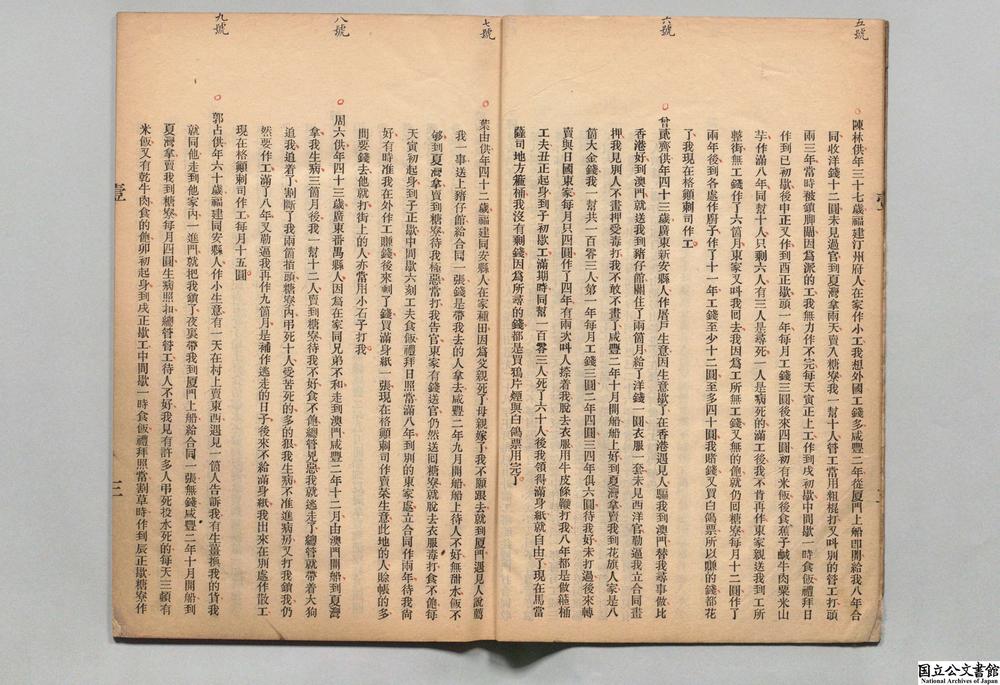 五號
陳林供年三十七歲福建汀州府人在家作小工我想外國工錢多咸豐二年從厦門上船即開給我八年合
同收洋錢十二圓未見過官到夏灣拿兩天賣八糖寮我一幫十人管工當用粗棍打又呌別的管工打頭
兩三年當時被鎖脚關因爲派的工我無力作不完每天寅正上工作到戌初歇中間歇一時食飯禮拜日
作到巳初歇後申正又作到酉正歇頭一年每月工錢三圓後來四圓初有米飯後食蕉子鹹牛肉粟米山
芋作滿八年同幫十人只剩六人有三人是尋死一人是病死的滿工後我不肯再作東家親送我到工所
整街無工錢作了六箇月東家又呌我囘去我因爲工所無工錢又無的僱就仍囘糖寮每月十二圓作了
兩年後到各處作厨子作了十一年工錢至少十二圓至多四十圓我賭錢又買白鴿票所以賺的錢都花
了我現在格顧刺司作工
六號
曾貳齊供年四十三歲廣東新安縣人作屠戶生意因生意歇了在香港遇見人騙我到澳門替我尋事做比
香港好到澳門就送我到豬仔館關住了兩箇月給了洋錢一圓衣服一套未見西洋官勒逼我立合同畫
押我見別人不畫押受毒打我不敢不畫了咸豐二年十月開船船上好到夏灣拿賣我到花旗人家是八
箇大金錢我一幫共一百零三人第一年每月工錢三圓二年四圓三四年俱六圓待我好未打過後來轉
賣與日國東家每月只四圓作了四年有兩次呌人捺着我脫去衣服用牛皮條鞭打我八年都是做箍桶
工夫丑正起身到子初歇工滿期時同幫一百零三人死了六十人後我領得滿身紙就自由了現在馬當
薩司地方箍桶我沒有剩錢因爲所尋的錢都是買鴉片煙與白鴿票用完了
七號
葉由供年四十二歲福建同安縣人在家種田因爲父親死了母親嫁了我不願跟去就到厦門遇見人說薦
我一事送上豬仔館給合同一張錢是帶我去的人拿去咸豐二年九月開船船上待人不好無甜水飯不
够到夏灣拿賣到糖寮待我極惡常打我告官東家有錢送官仍然送囘糖寮就脫去衣服毒打食不飽每
天寅初起身到子正歇中間歇六刻工夫食飯禮拜日照常滿八年到別的東家處立合同作兩年待我尙
好有時准我在外作工賺錢後來剩了錢買滿身紙一張現在格顧刺司作賣菜生意此地的人賒帳的多
問要錢去他就打街上的人亦常用小石子打我
八號
周六供年四十三歲廣東番禺縣人因爲在家同兄弟不和走到澳門咸豐二年十二月由澳門開船到夏灣
拿我生病三箇月後我一幫十二人賣到糖寮待我不好食不飽總管兇惡我就逃走了總管就帶着大狗
追我追着了割斷了我兩箇指頭糖寮內弔死十人受苦死的多的狠我生病不准進病房又打我鎖我仍
然要作工滿了八年又勒逼我再作九箇月是補作逃走的日子後來不給滿身紙我出來在別處作散工
現在格顧刺司作工每月十五圓
九號
郭占供年六十歲福建同安縣人作小生意有一天在村上賣東西遇見一箇人告訴我有生薑換我的貨我
就同他走到他家內一進門就把我鎖了夜裏帶我到厦門上船給合同一張無錢咸豐二年十月開船到
夏灣拿賣我到糖寮每月四圓生病照扣總管管工待人不好我見有許多人弔死投水死的每天三頓有
米飯又有乾牛肉食的飽卯初起身到戌正歇工中間歇一時食飯禮拜照當割草時作到辰正歇糖寮作
三
国立公文書館
National Archives of Japan